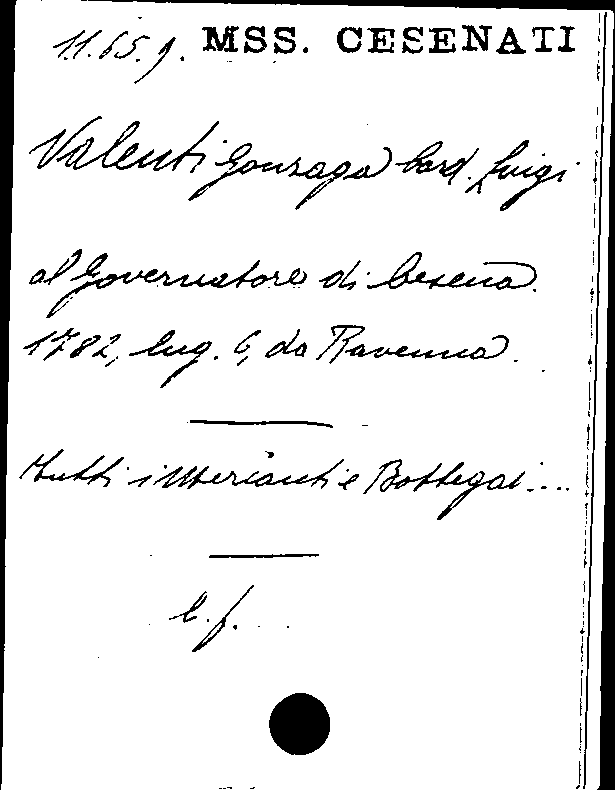 11.65.9. MSS. CESENATI
Valenti Gonzaga Card. Luigi
al Governatore di Cesena.
1782, lug. 6, da Ravenna.
tutti i Mercanti e Bottegai....
c. f. ..